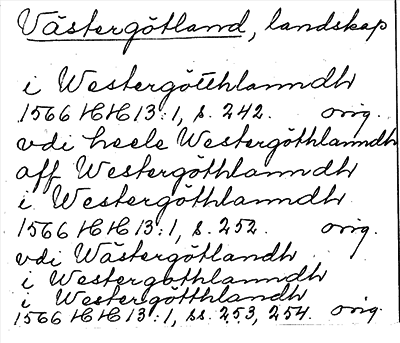 Västergötland, landskap
i Westergötthlanndh
1566 HH 13:1, s. 242. orig.
vdi heele Westergöthlanndh
aff Westergöthlanndh
i Westergöthlanndh
1566 HH 13:1, s. 252. orig.
vdi Wästergötlandh
i Westergöthlanndh
i Westergötthlandh
1566 HH 13:1, ss. 253, 254. orig.